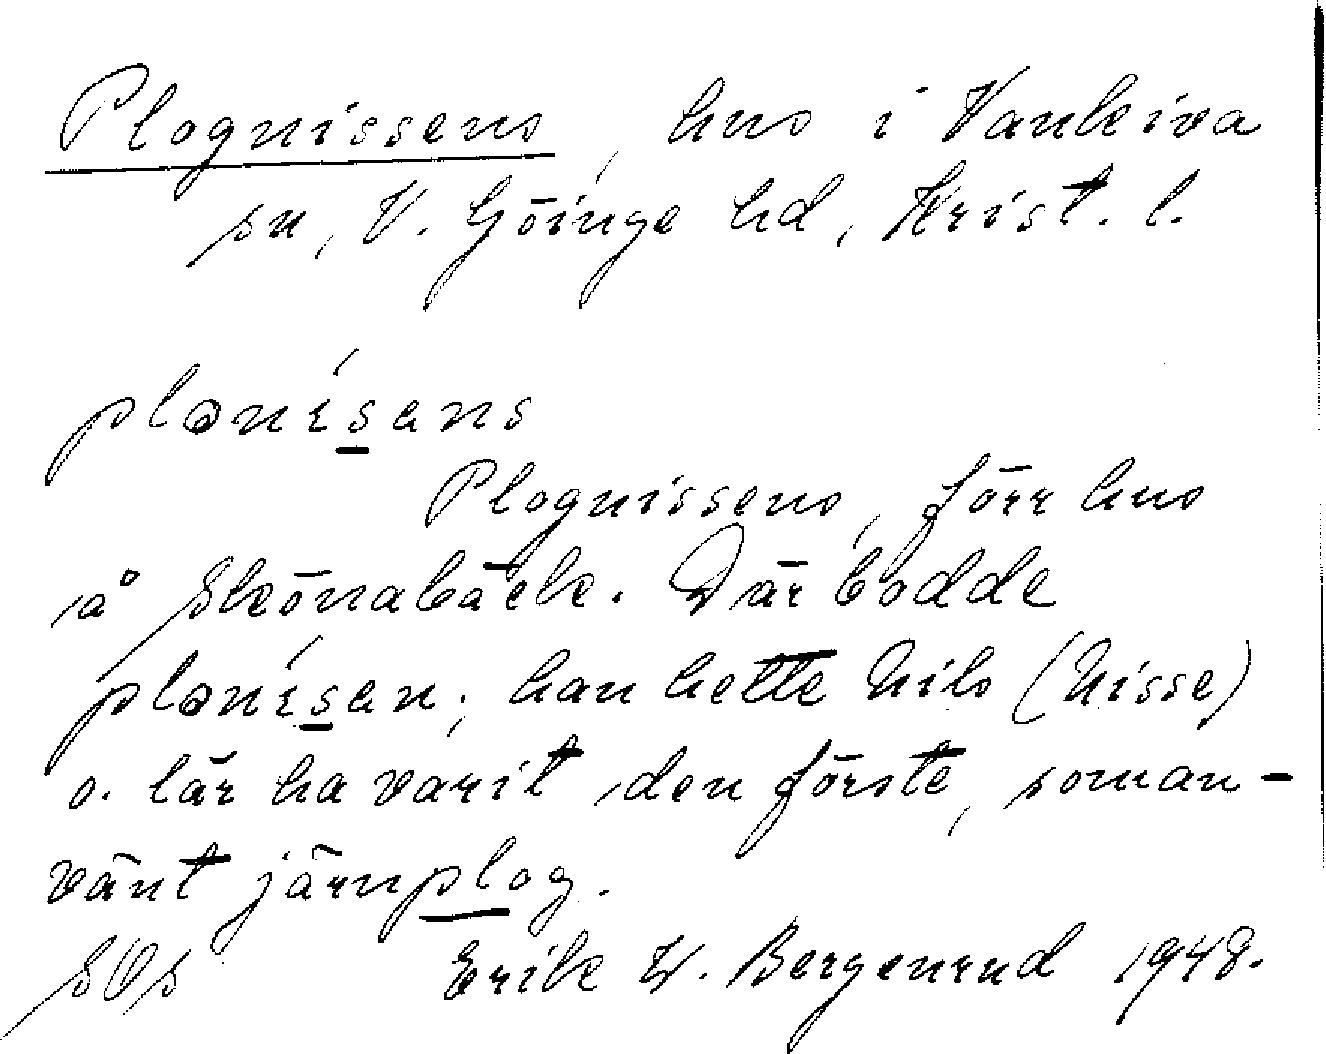 Plognissens, hus i Vankiva
sn, V. Göinge hd, Krist. l.
plɔnísans
Plognissens, förr hus
å Skönabäck. Där bodde
plɔnísan; han hette Nils (Nisse)
o. lär ha varit den förste, som an-
vänt järnplog.
SOs Erik W. Bergenrud 1948.